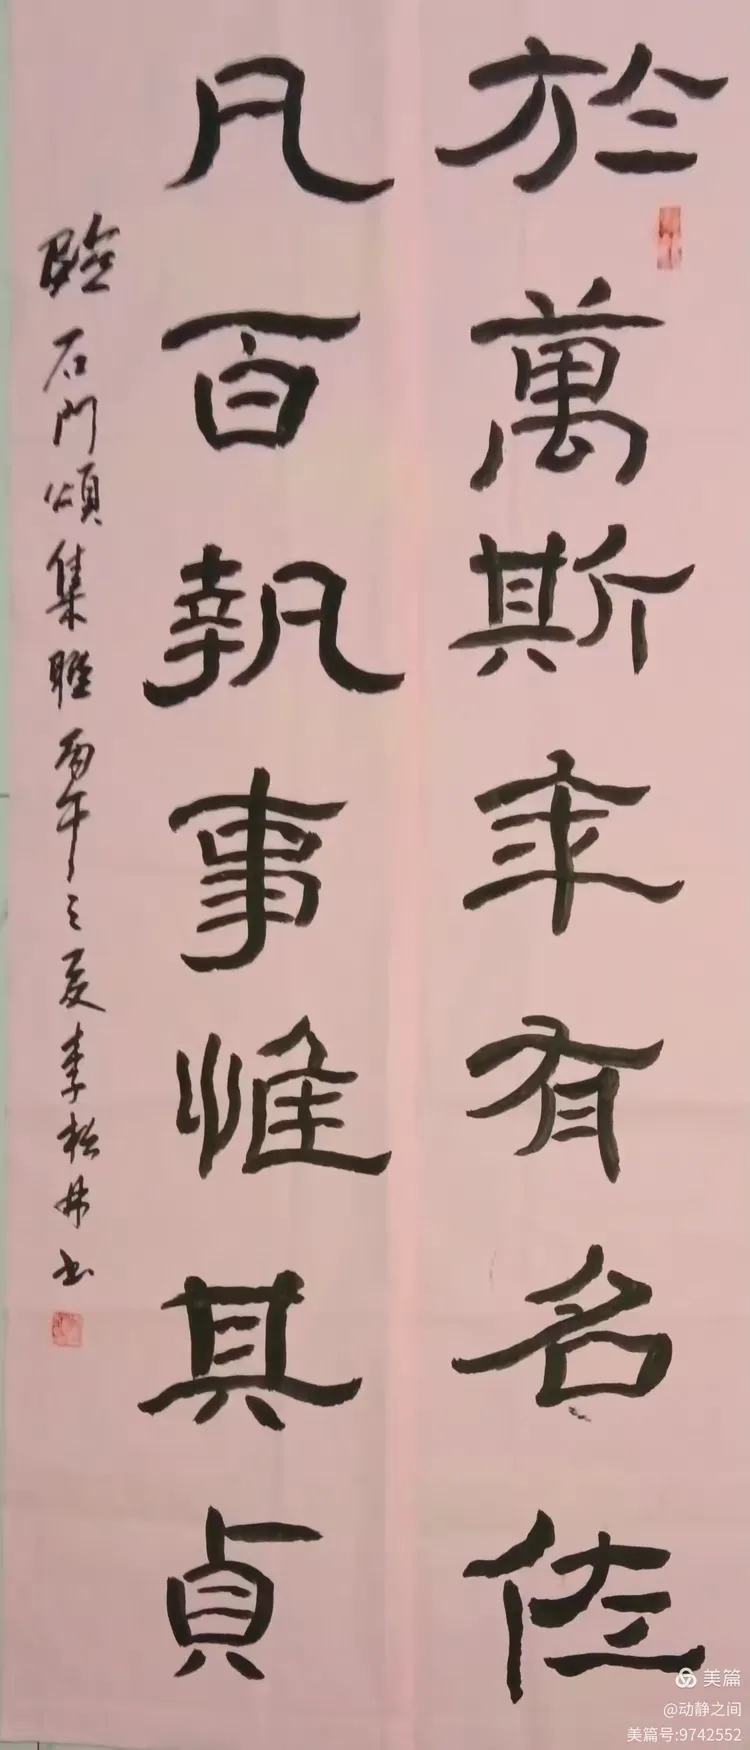 於萬斯年有名佐
凡百執事惟其貞
臨石門頌集聯丙午之夏李松林书
美篇
@动静之间
美篇号:9742552